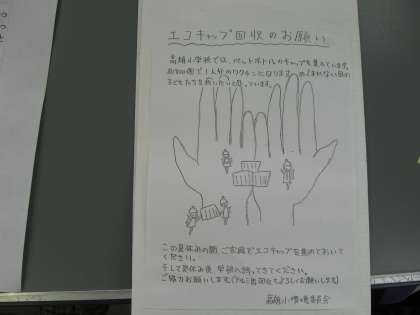 エコキャップ回収のお願い
高雄小学校では、ペットボトルのキャップを集めています。
約800個で1人分のワクチンになります。めぐまれない国の
子どもたちを救いたいと思っています。
この夏休みの間、ご家庭でエコキャップを集めておいて
ください。
そして夏休み後、学校へ持ってきてください。
ご協力お願いします(アルミ缶回収もよろしくお願いします)
高雄小環境委員会